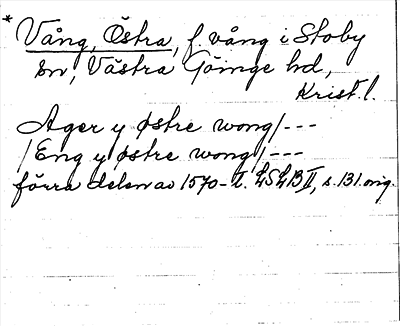 * Vång, Östra, f. vång i Stoby
sn, Västra Göinge hd,
Krist. l.
Ager y østre wong/---
/Eng y østre wong/---
förra delen av 1570-t. LSLB II, s. 131 orig.